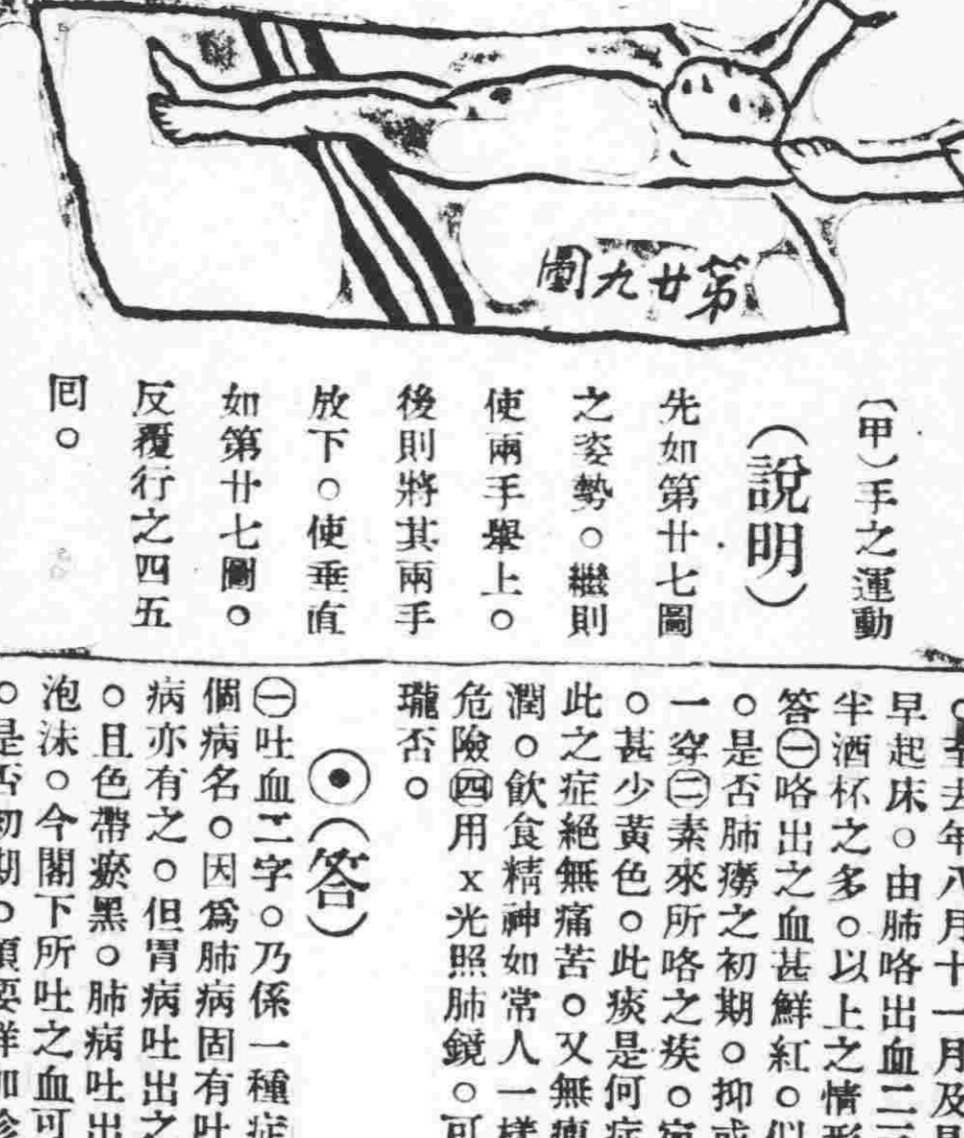 第廿九圖
〔甲〕手之運動
（說明）
先如第廿七圖
之姿勢。繼則
使兩手舉上。
後則將其兩手
放下。使垂直
如第廿七圖。
反覆行之四五
回。
去年八月十一月及
早起床。由肺咯出血二三
半酒杯之多。以上之情形
答㊀咯出之血甚鮮紅。似
。是否肺癆之初期。抑或
一穿㊁素來所咯之痰。
。甚少黃色。此痰是何症
此之症絕無痛苦。又無
潤。飲食精神如常人一樣
危險㊃用x光照肺鏡。可
瓏否。
（答）
㊀吐血二字。乃係一種症
個病名。因爲肺病固有吐
病亦有之。但胃病吐出之
。且色帶瘀黑。肺病吐出
泡沫。今閣下所吐之血可
。是否初期。須要詳加診